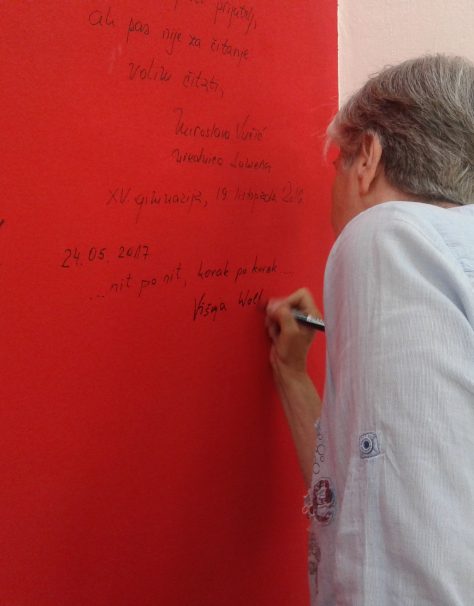 prijatelj,
ali pas nije za čitanje
Volim čitati,
Miroslava Vučić
urednica Lumena
XV. gimnazija, 19. listopada
24.05.2017
...nit po nit, korak po korak...
Višnja Wolf